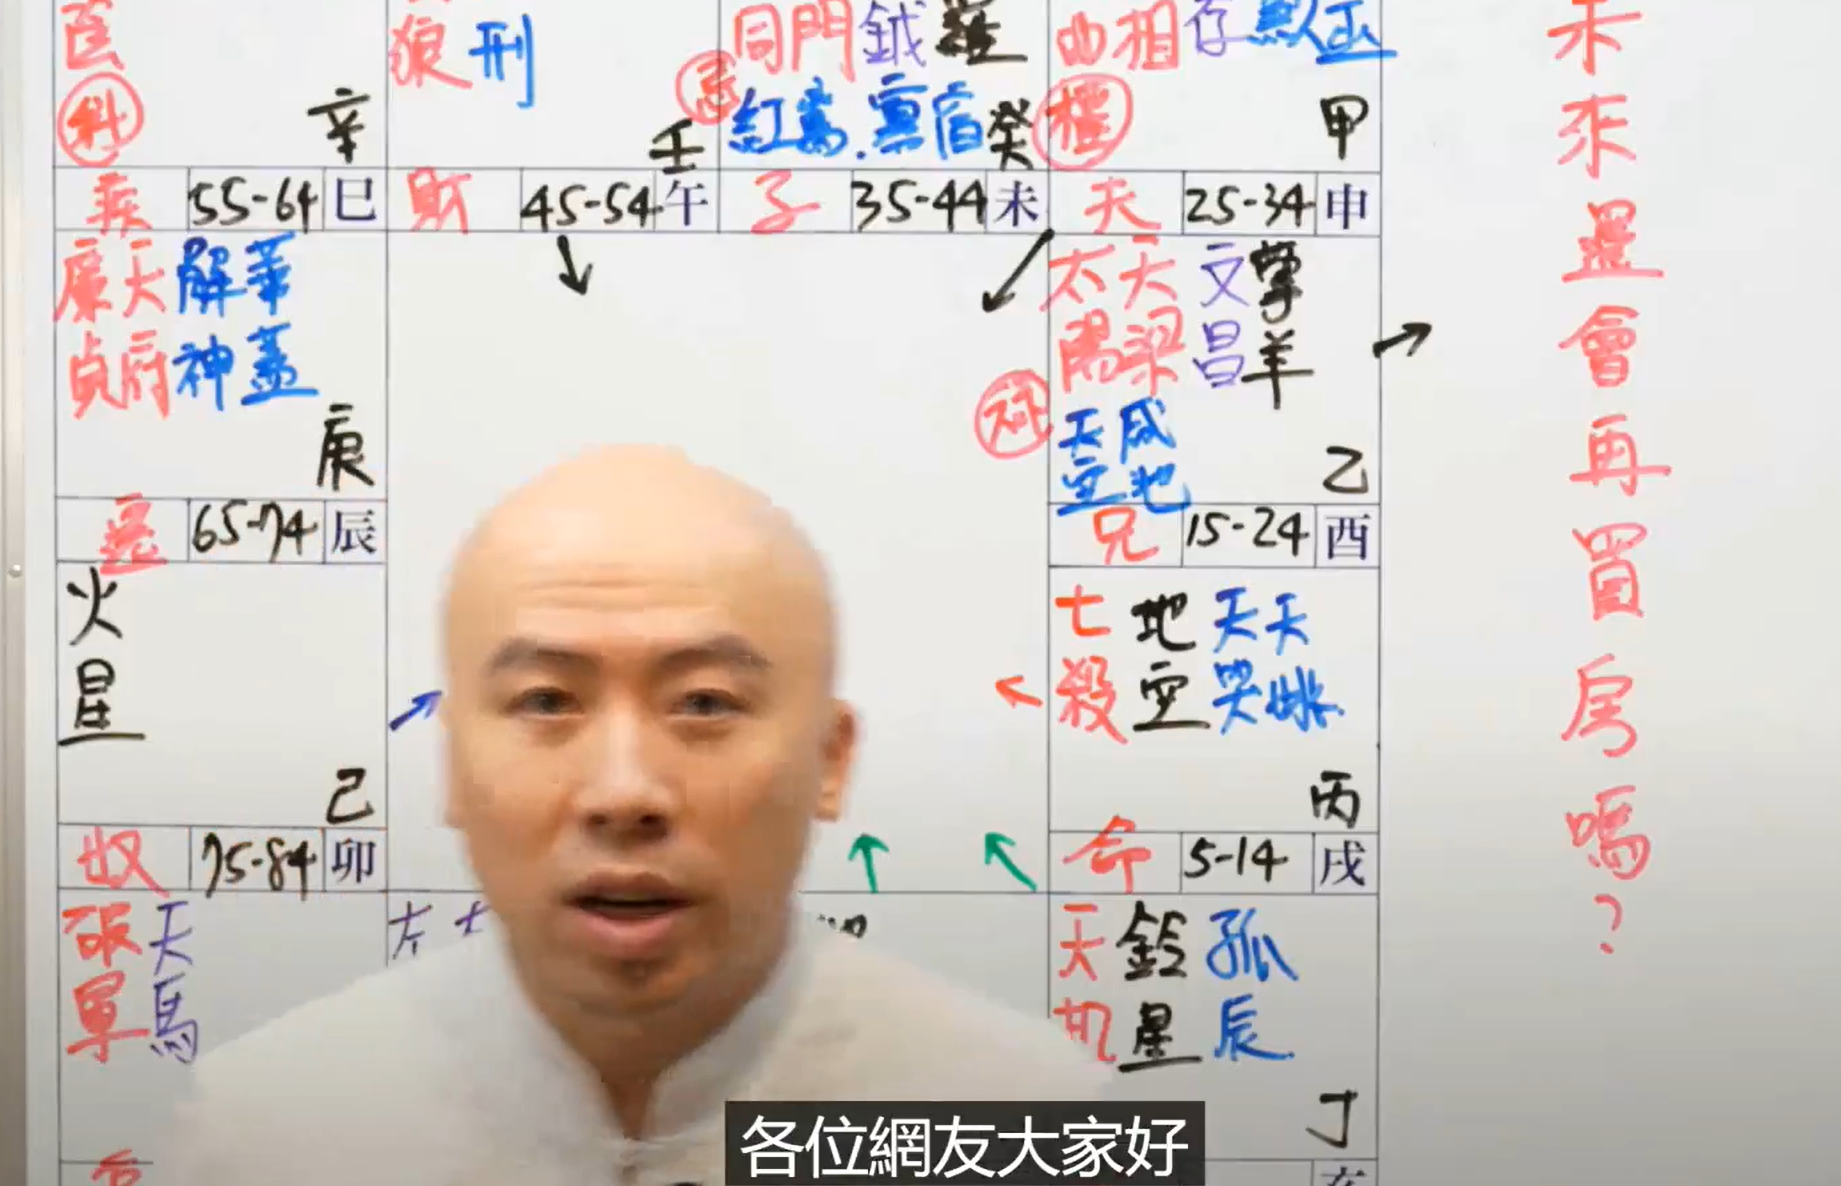 狼 刑
同 門 鉞 羅
相 存
科
辛
壬
忌
紅鸞 寡宿
癸
權
甲
疾 55-64 巳
財 45-54 午
子 35-44 未
夫 25-34 申
廉貞 天府 解神 華蓋
庚
太陽 天梁 文昌 擎羊
祿
天空 咸池
乙
遷 65-74 辰
兄 15-24 酉
火星
己
七殺 地空 天哭 天姚
丙
奴 75-84 卯
命 5-14 戌
破軍 天馬
左
天机 鈴星 孤辰
丁
未來還會再買房嗎?
各位網友大家好